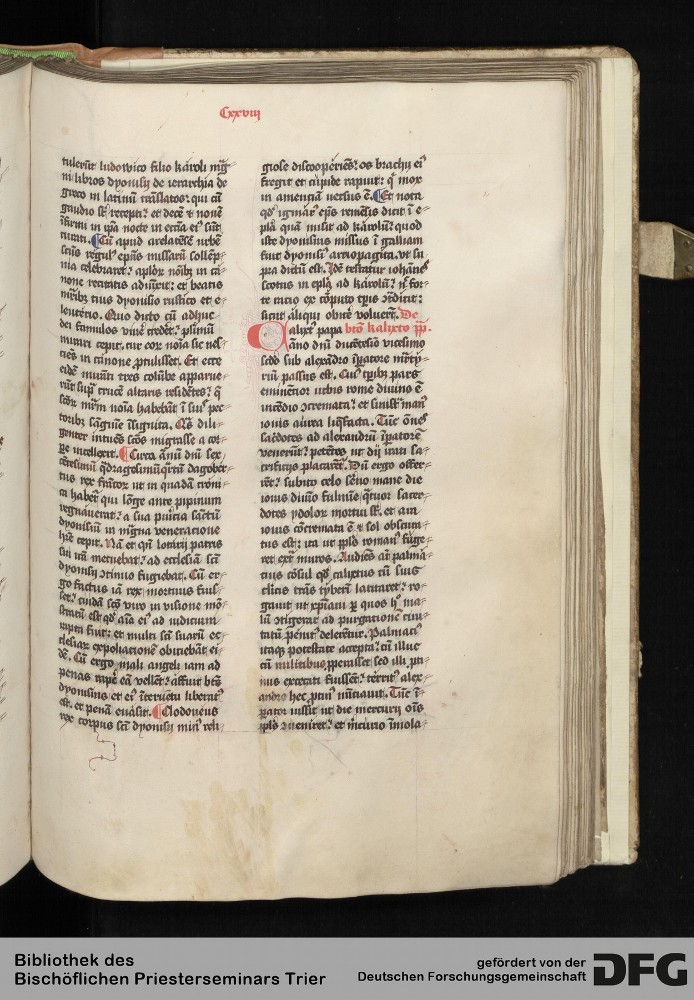 Cxxviii
tulerūt ludowico filio karoli mḡ-
ni libros dyonisij de ierarchia de
greco in latinū trāslatos: qui cū
gaudio sūt recepti: et decē et nouē
īfirmi in ip̄a nocte in ecc̄ia eiꝰ sūt
curati. Cū apud arelatēsē urbē
sc̄ūs regulꝰ ep̄ūs missarū sollēp-
nia celebraret: aplōꝝ nōībꝫ in ca-
none recitatis adiūxit: et beatis
mr̄ibꝫ tuis dyonisio rustico et e-
leuterio. Quo dicto cū adhuc
dei famulos viuē crēdēt: plimū
mirari cepit, cur eoꝝ nōīa sic nes-
ciēs in canone ꝓtulisset. Et ecce
eidē mirāti tres colūbe apparue-
rūt sup̄ crucē altaris residētes: q̄
scōꝝ mr̄m nōīa habebāt ī suis pec-
toribꝫ sāguine īsignita. Qs̄ dili-
genter intuēs scōs migrasse a cor-
pe intellexit. Circa ānū dnī sex-
cētesimū q̄dragesimūq̄rtū dagober-
tus rex frācoꝝ ut in quadā croni-
ca habet̄ qui lōge ante pipinum
regnauerat: a sua puicia sāctū
dyonisiū in magna veneracione
hr̄e cepit. Nā et qn̄ lotarij patris
sui irā metuebat: ad ecclesiā scī
dyonisij ꝯtinuo fugiebat. Cū er-
go factus iā rex mortuus fuis-
set: cuidā scō viro in visione mō-
stratū est qd̓ aīa eiꝰ ad iudicium
rapta fuit: et multi scī suarū ec-
clesiaꝝ expoliacionē obiciebāt ei-
dē. Cū ergo mali angeli iam ad
penas rape eā vellēt: affuit btūs
dyonisius et eiꝰ īteruētu liberatꝰ
est, et penā euāsit. Clodoueus
rex corpus scī dyonisij minꝰ reli-
giose discooperiēs: os brachij eiꝰ
fregit et cupide rapuit: q̄ mox
in amenciā versus ē. Et nota
qd̓ igmarꝰ ep̄ūs remēsis dicit ī e-
pla quā misit ad karolū: quod
iste dyonisius missus ī galliam
fuit dyonisiꝰ ariopagita, ut su-
pra dictū est. Idē testatur iohānes
scotus in epla ad karolū: n̄ for-
te racio ex cōputo tp̄is ꝯtdicit:
sicut aliqui obicē voluerūt. De
alixtꝰ papa bto kalixto pp̄.
āno dnī ducētesio vicesimo
scdō sub alexādro īpatore mr̄ty-
riū passus est. Cuiꝰ tp̄ibꝫ pars
eminētior urbis rome diuino ē
incēdio ꝯcremata: et sinist̄ manꝰ
iouis aurea liq̄facta. Tūc om̄es
sacēdotes ad alexandrū īpatorē
venerūt: petētes ut dij irati sa-
crificijs placarēt. Dū ergo offer-
rēt: subito celo sēno mane die
iouis diuīo fulmīe q̄tuor sacer-
dotes ydoloꝝ mortui sūt, et ara
iouis cōcremata ē: et sol obscura-
tus est: ita ut ppl̄s romanꝰ fuge-
ret extᷓ muros. Audiēs aūt palma-
cius cōsul qd̓ calixtus cū suis
clicis trās tyberī latitaret: ro-
gauit ut xp̄iani ꝑ quos hꝰ ma-
lū ꝯtigerat ad purgacionē ciui-
tatū penitꝰ delerētur. Palmaciꝰ
itaqꝫ potestate accepta: cū illuc
cū militibus ꝓperasset sed illi pti-
nus excecati fuissēt: territꝰ alex-
andro hec ptinꝰ nūciauit. Tūc ī-
perator iussit ut die mercurij om̄s
ppl̄s ꝯueniret: et mercurio īmola-
Bibliothek des
Bischöflichen Priesterseminars Trier
gefördert von der
Deutschen Forschungsgemeinschaft
DFG